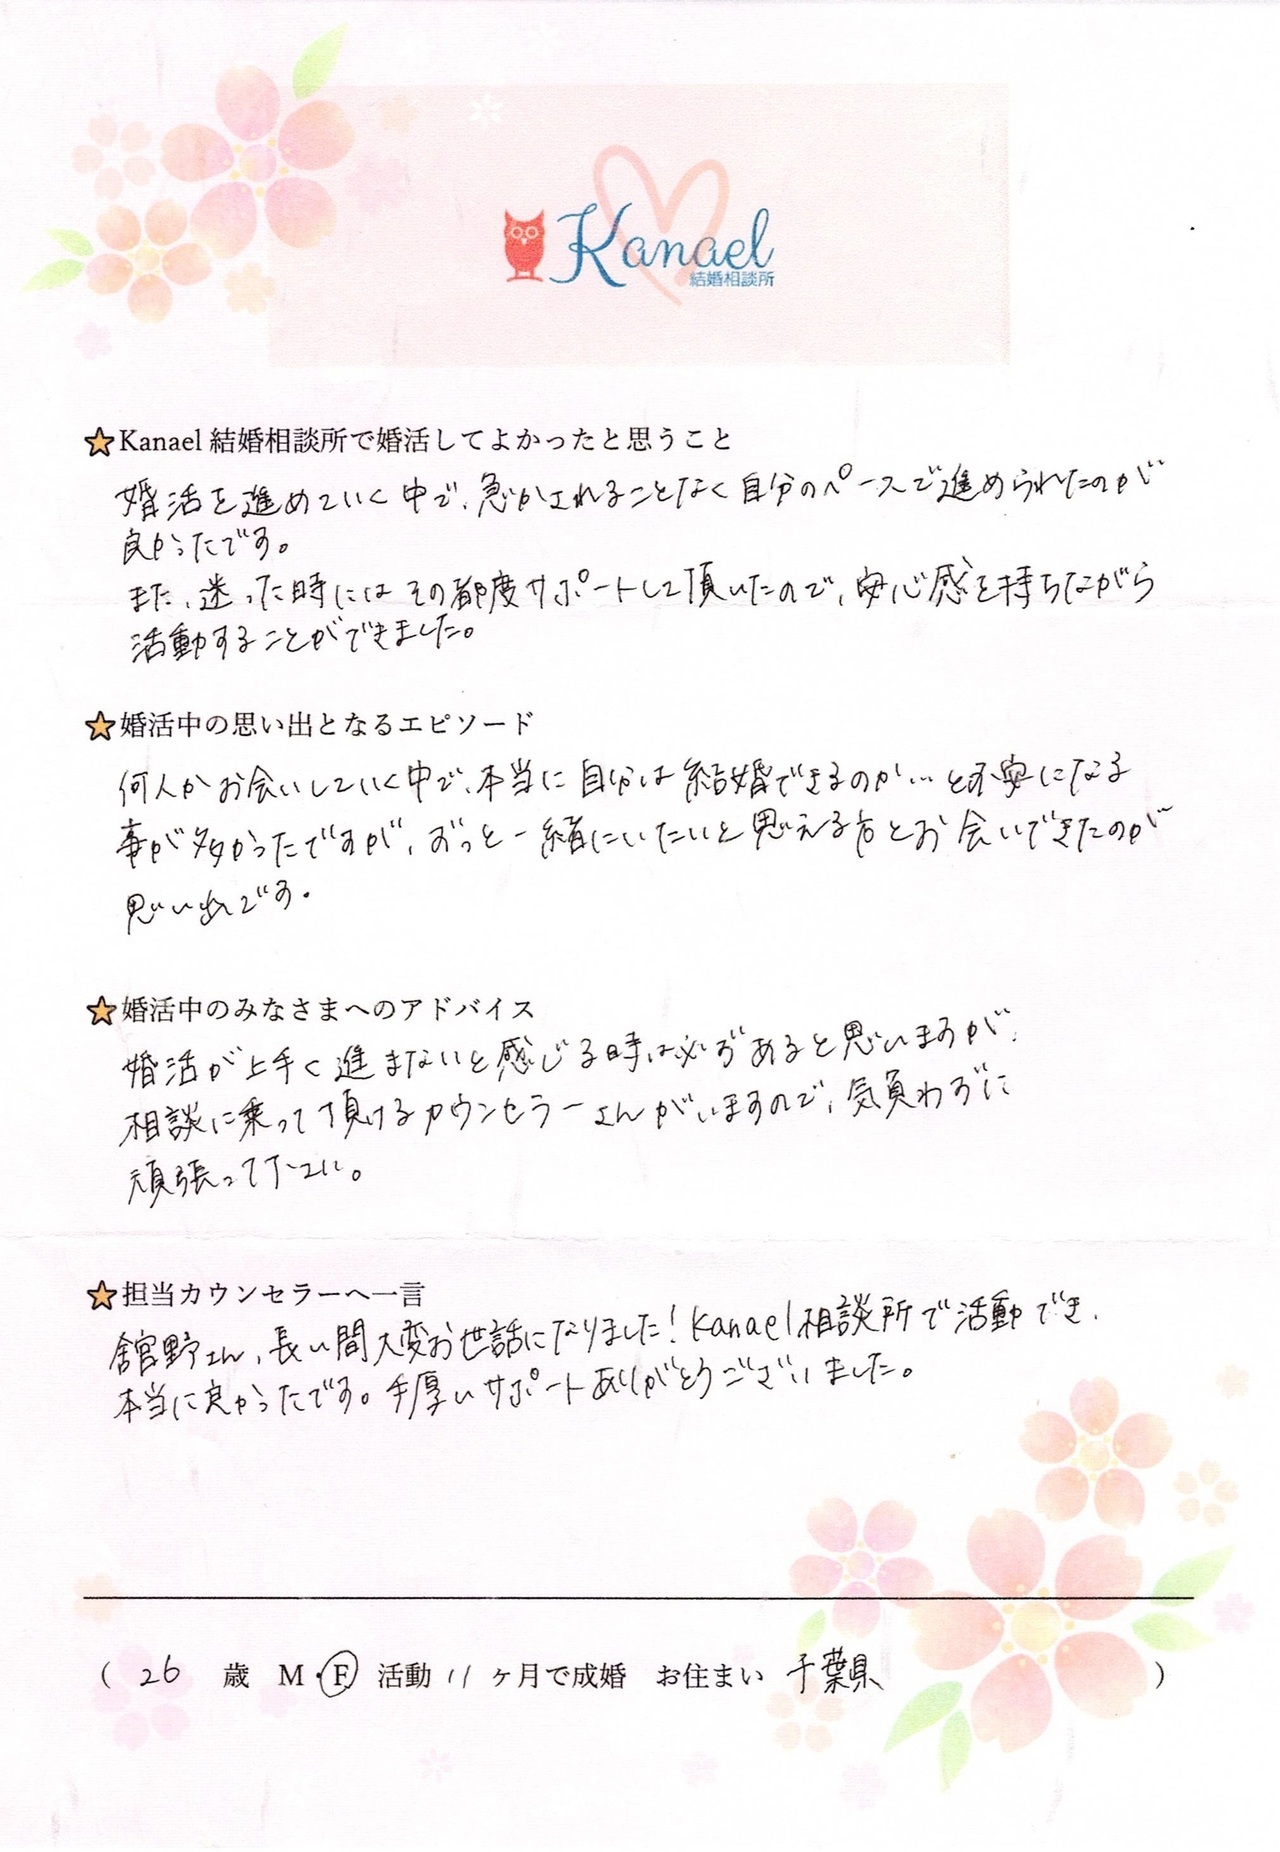 Kanael
結婚相談所
Kanael 結婚相談所で婚活してよかったと思うこと
婚活を進めていく中で、急かされることなく自分のペースで進められたのが
良かったです。
また、迷った時にはその都度サポートして頂いたので、安心感を持ちながら
活動することができました。
婚活中の思い出となるエピソード
何人かお会いしていく中で、本当に自分は結婚できるのか…と不安になる
事が多かったですが、ずっと一緒にいたいと思える方とお会いできたのが
思い出です。
婚活中のみなさまへのアドバイス
婚活が上手く進まないと感じる時は必ずあると思いますが、
相談に乗って頂けるカウンセラーさんがいますので、気負わずに
頑張って下さい。
担当カウンセラーへ一言
舘野さん、長い間大変お世話になりました！Kanael相談所で活動でき、
本当に良かったです。手厚いサポートありがとうございました。
( 26 歳 M・F 活動 11 ヶ月で成婚 お住まい 千葉県 )